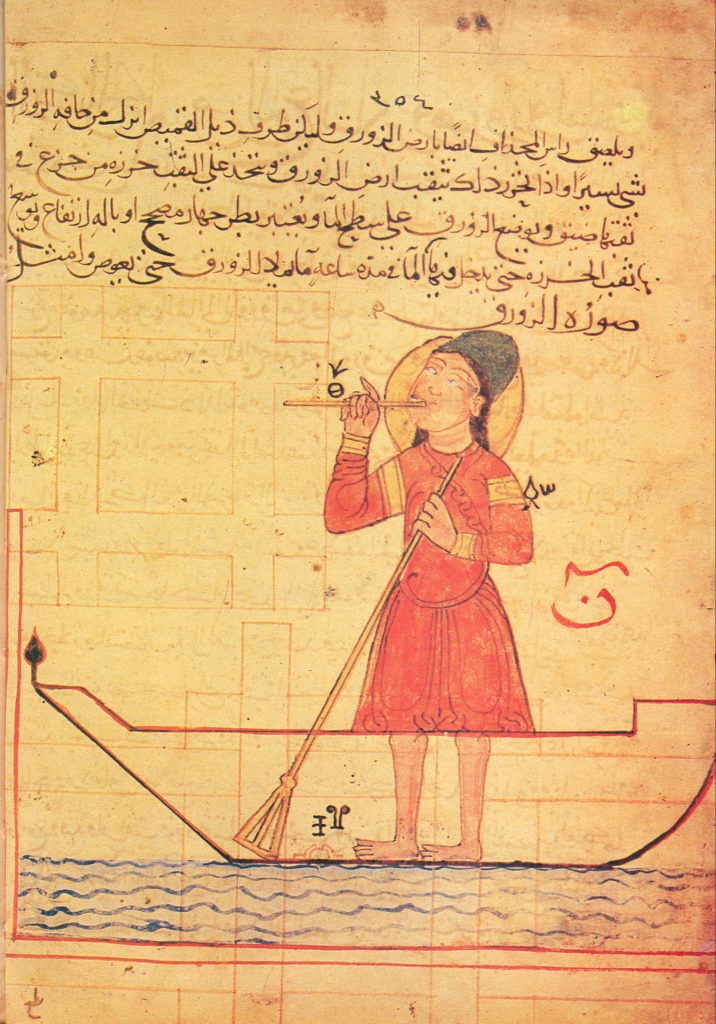 ويلصق راس المجذاف ايضا بارض الزورق وليكن طرف ذيل القميص انزل من حافة الزورق
بشي يسير واذا تحرر ذلك تثقب ارض الزورق ويتخذ على الثقب خرزه من جزع في
ثقبها ضيق ويوضع الزورق على سطح الما ويعتبر بطرجهار مصحح او باله ارتفاع ويوسع
ثقب الخرزه حتى يدخل فيها الما في مدة ساعة ما يملا الزورق حتى يغوص وامثل
صورة الزورق
ن